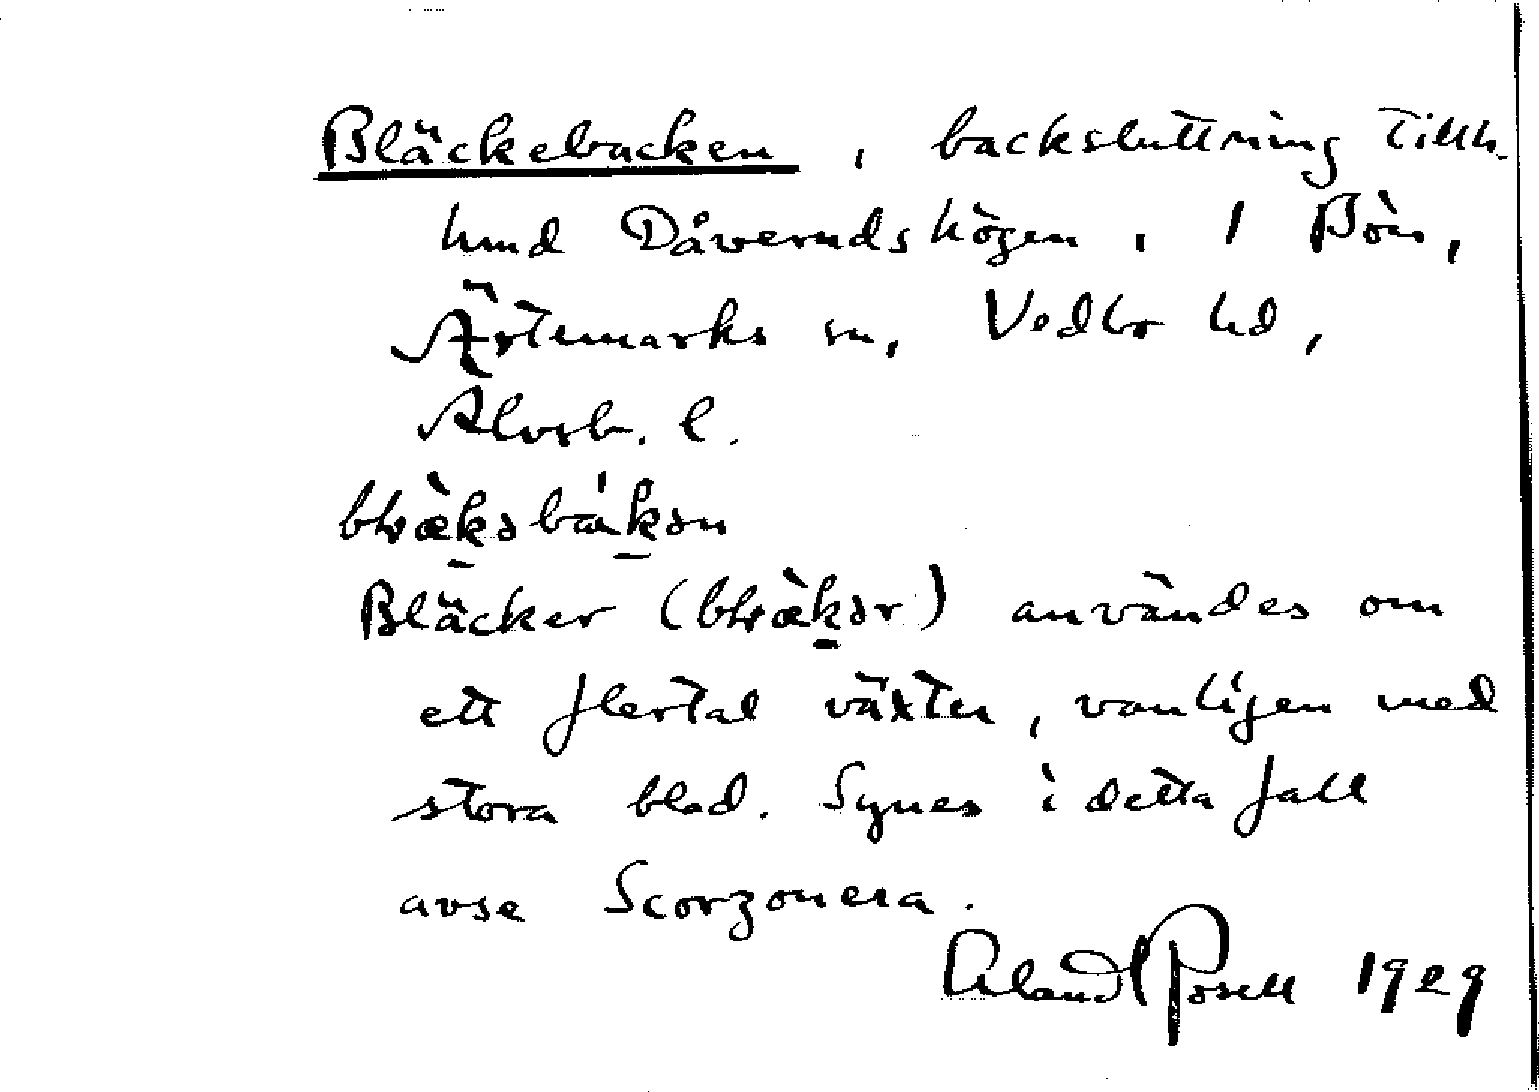 Bläckebacken, backsluttning tillh.
hmd Dåverudshögen, 1 Bön,
Ärtemarks sn, Vedbo hd,
Älvsb. l.
Bläcker () användes om
ett flertal växter, vanligen med
stora blad. Synes i detta fall
avse Scorzonera.
1929